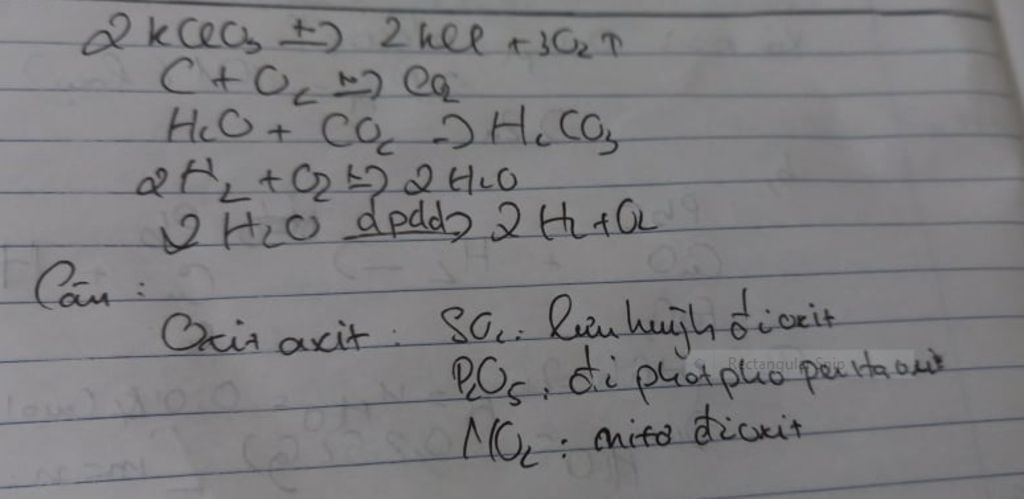 2KClO₃ t°→ 2KCl + 3O₂↑
C + O₂ t°→ CO₂
H₂O + CO₂ → H₂CO₃
2H₂ + O₂ t°→ 2H₂O
2H₂O đpdd→ 2H₂ + O₂
Câu :
Oxit axit : SO₂ : lưu huỳnh đioxit
P₂O₅ : đi photpho pentaoxit
Rectangular Snip
NO₂ : nitơ đioxit